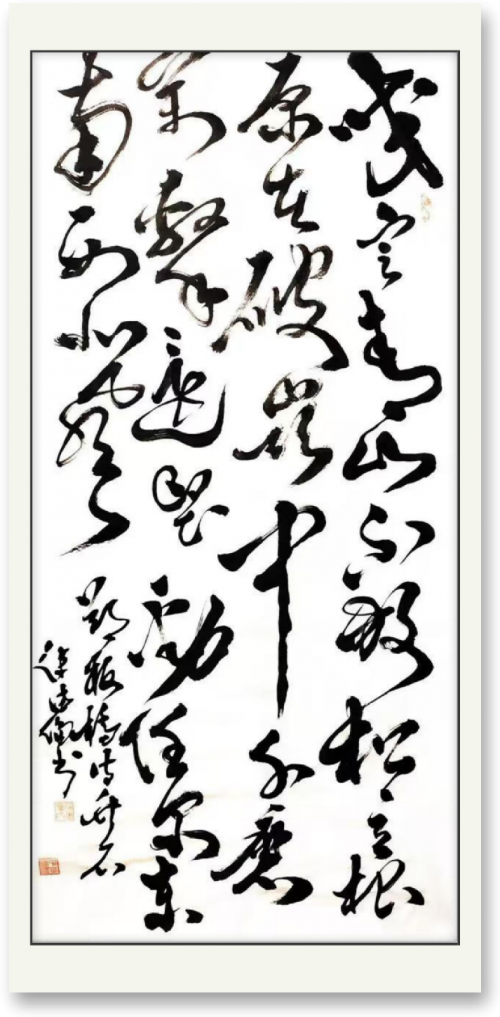 咬定青山不放松立根
原在破岩中千磨
萬擊還堅勁任尔东
南西北风
郑板橋诗竹石
书